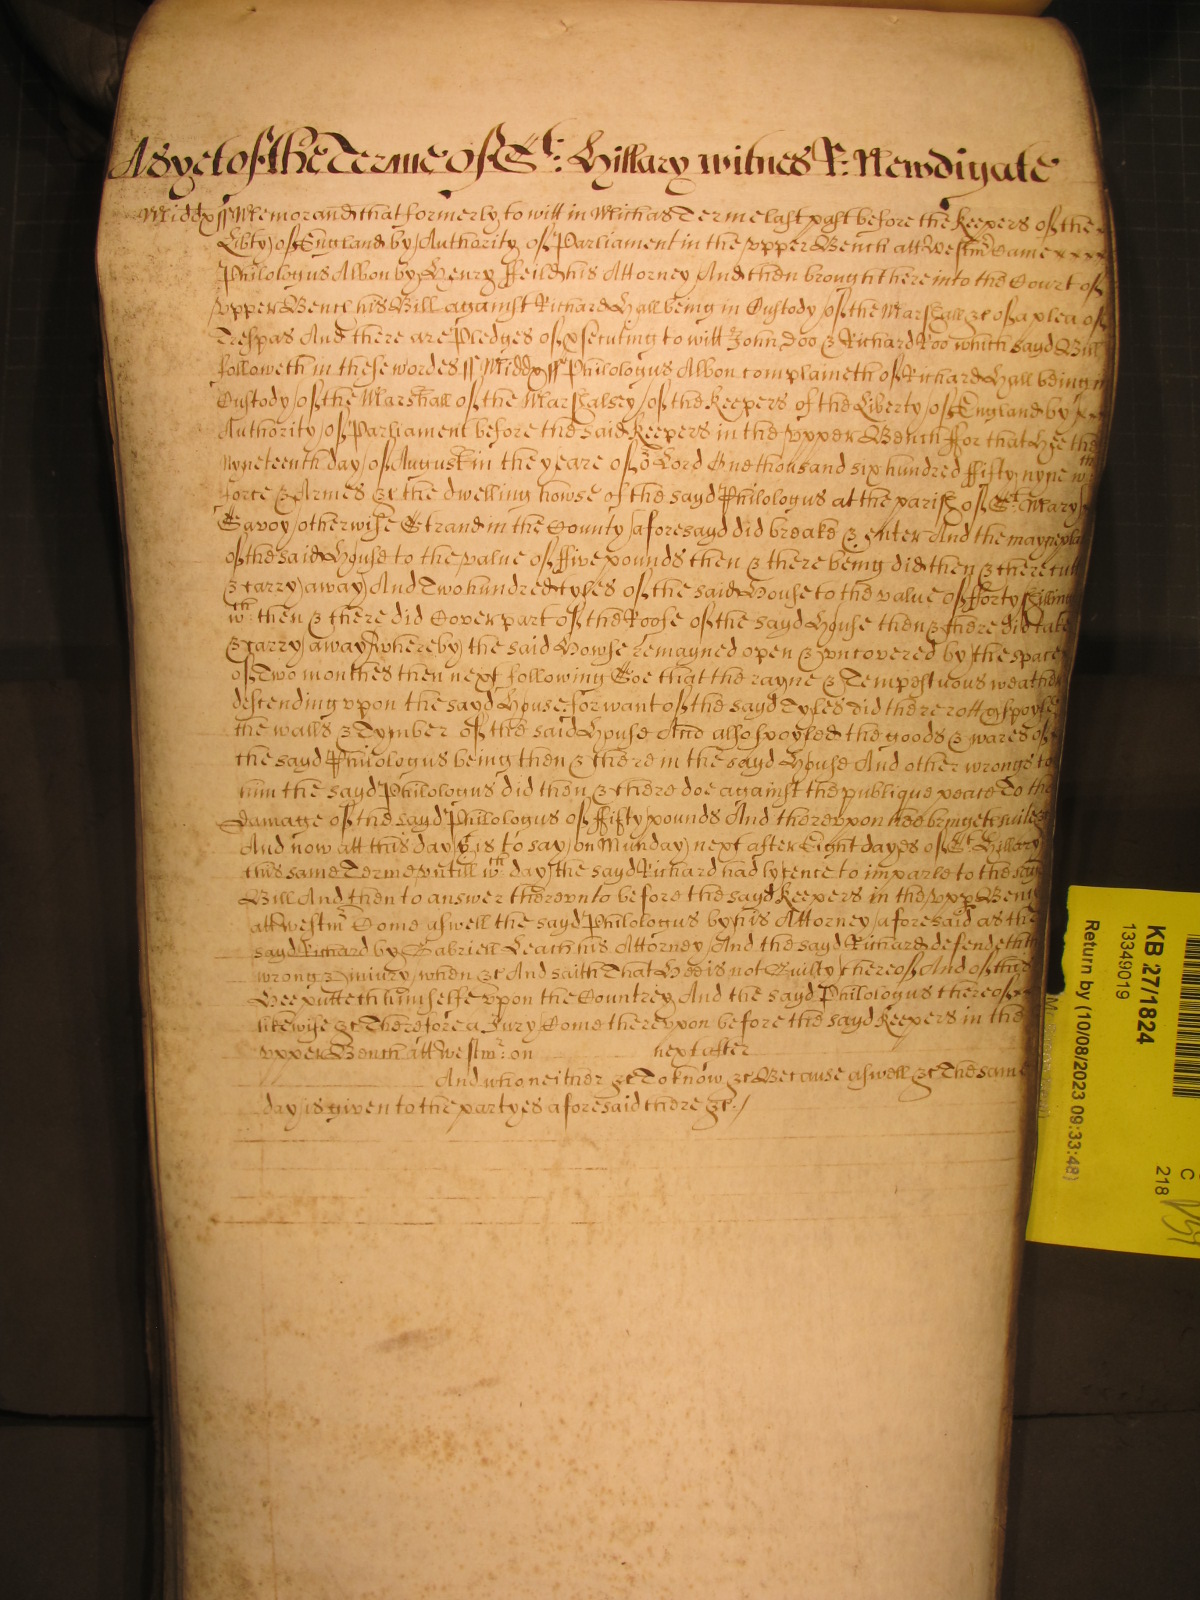 As yet of the Terme of St: Hillary witnes R: Newdigate
Middx ss Memorand that formerly to witt in Michas Terme last past before the keepers of the
Libty of England by Authority of Parliament in the upper Bench att Westmr Came
Philologus Albon by Henry Feild his Attorney And then brought here into the Court of
upper Bench his Bill against Richard Hall being in Custody of the Marshall &c of a plea of
Trespas And there are Pledges of psecuting to witt John Doo & Richard Roo which sayd Bill
followeth in these wordes ss Middx ss Philologus Albon complaineth of Richard Hall being in
Custody of the Marshall of the Marshalsey of the keepers of the Liberty of England by
Authority of Parliament before the said keepers in the vpper Bench ffor that Hee the
Nyneteenth day of August in the yeare of or Lord One thousand six hundred ffifty nyne wth
force & Armes &c the dwelling howse of the sayd Philologus at the parish of St: Mary
Savoy otherwise Strand in the County aforesayd did breake & enter And the
of the said House to the value of ffive pounds then & there being did then & there cutt
& carry away And Two hundred tyles of the said House to the value of fforty shillings
wth: then & there did Cover part of the Roofe of the sayd House then & there did take
& carry away whereby the said Howse remayned open & vncovered by the space
of Two monthes then next following Soe that the rayne & Tempestuous weather
descending vpon the sayd House for want of the sayd Tyles did there rott & spoyle
the walls & Tymber of the said House And also spoyled the goods & wares of
the sayd Philologus being then & there in the sayd House And other wrongs to
him the sayd Philologus did then & there doe against the publique peace To the
damage of the sayd Philologus of ffifty pounds And therevpon hee bringeth suite &c
And now att this day yt is to say on Munday next after Eight dayes of St Hillary
this same Terme vntill wch day the sayd Richard had lycence to imparle to the sayd
Bill And then to answer therevnto before the sayd keepers in the vpp Bench
att Westmr Come aswell the sayd Philologus by his Attorney aforesaid as the
sayd Richard by Gabriell Leach his Attorney And the sayd Richard defendeth the
wrong & iniury when &c And saith That Hee is not Guilty thereof And of this
Hee putteth himselfe vpon the Countrey And the sayd Philologus thereof
likewise &c Therefore a Jury Come therevpon before the sayd keepers in the
vpper Bench att Westmr: on next after
And who neither &c To know &c Because aswell &c The same
day is given to the partyes aforesaid there &c./
KB 27/1824
13349019
Return by (10/08/2023 09:33:48)
C
218